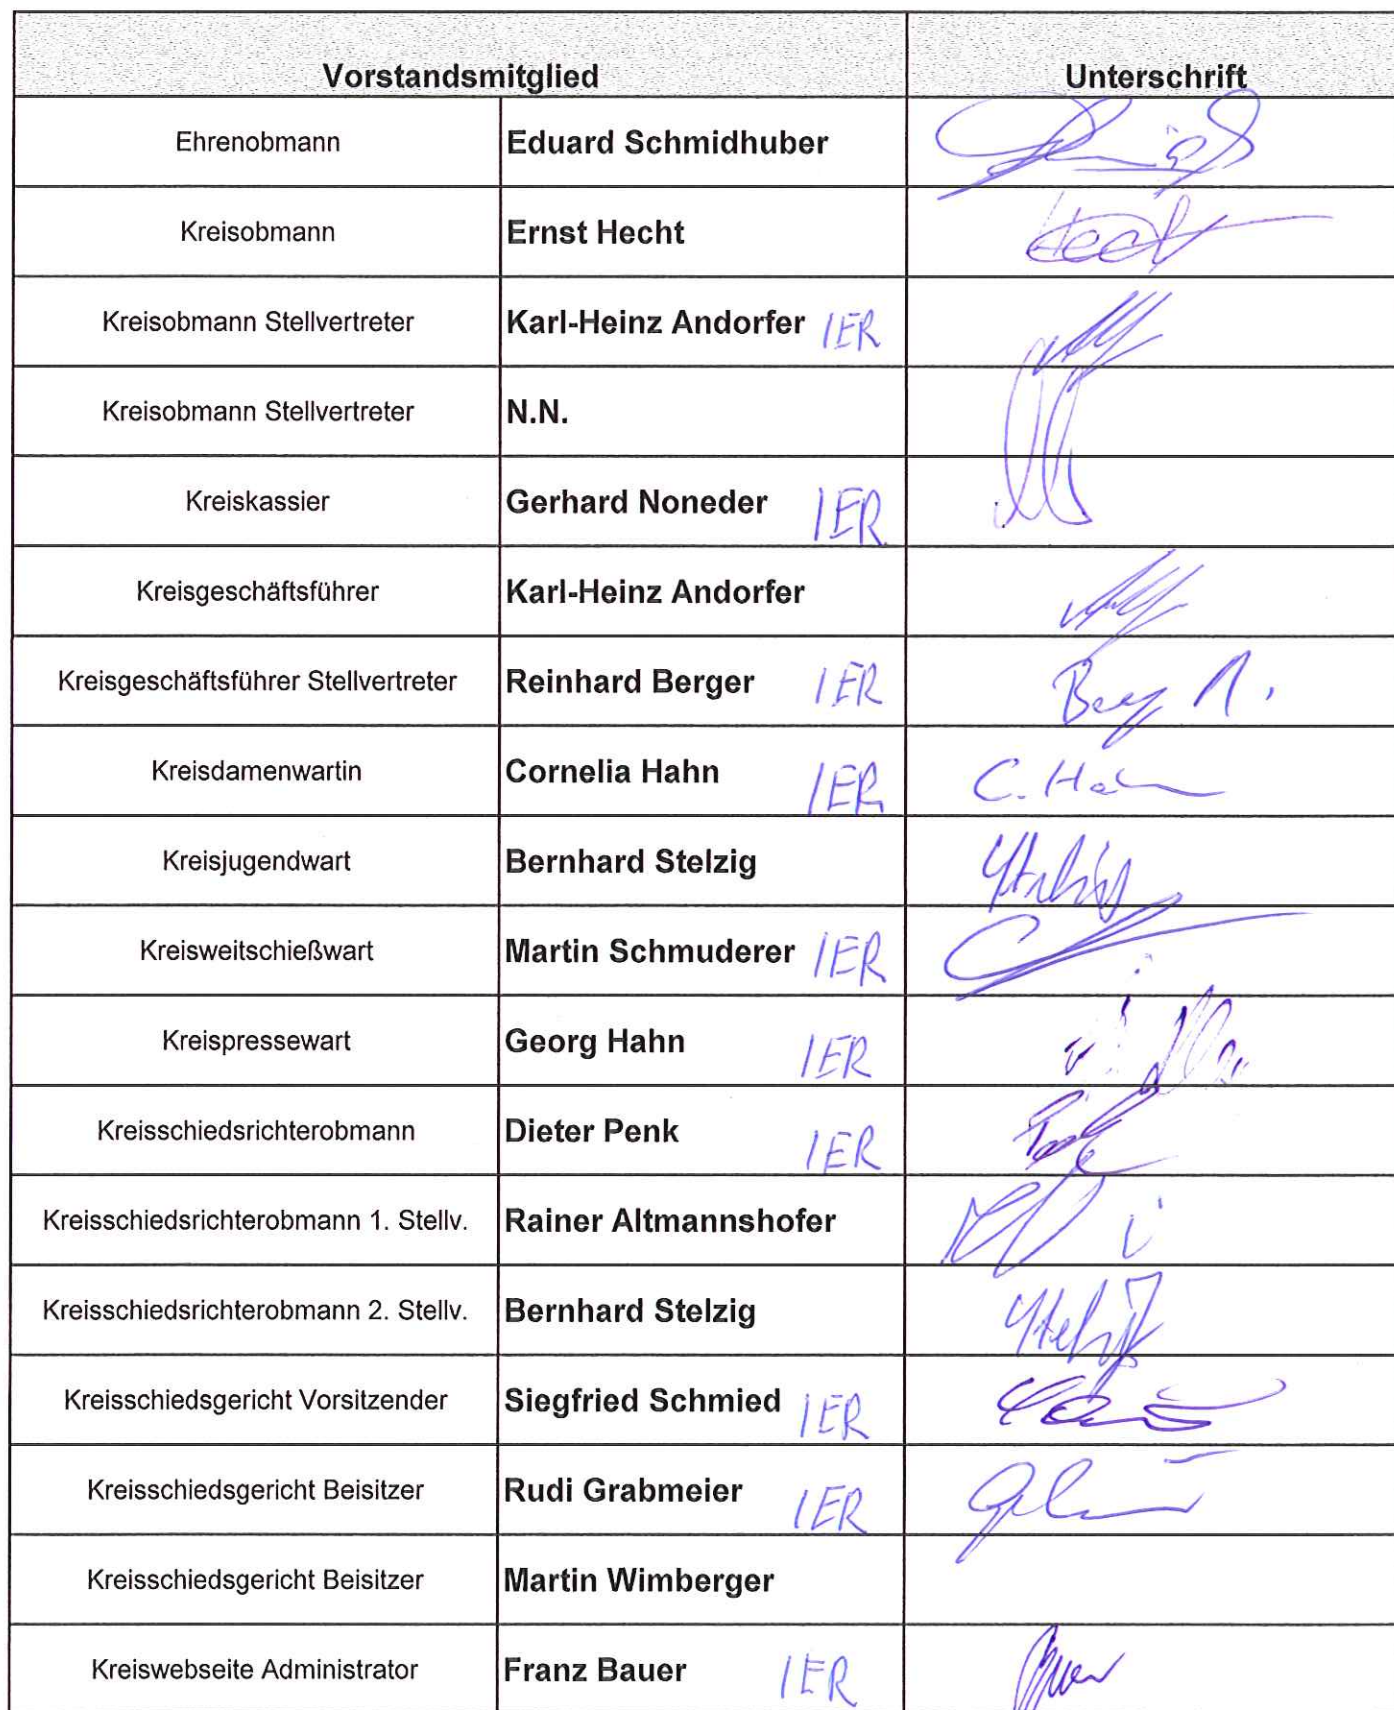 Vorstandsmitglied Unterschrift
Ehrenobmann Eduard Schmidhuber
Kreisobmann Ernst Hecht Hecht
Kreisobmann Stellvertreter Karl-Heinz Andorfer IER
Kreisobmann Stellvertreter N.N.
Kreiskassier Gerhard Noneder IER
Kreisgeschäftsführer Karl-Heinz Andorfer
Kreisgeschäftsführer Stellvertreter Reinhard Berger IER
Kreisdamenwartin Cornelia Hahn IER C. Hahn
Kreisjugendwart Bernhard Stelzig
Kreisweitschießwart Martin Schmuderer IER
Kreispressewart Georg Hahn IER
Kreisschiedsrichterobmann Dieter Penk IER
Kreisschiedsrichterobmann 1. Stellv. Rainer Altmannshofer
Kreisschiedsrichterobmann 2. Stellv. Bernhard Stelzig
Kreisschiedsgericht Vorsitzender Siegfried Schmied IER
Kreisschiedsgericht Beisitzer Rudi Grabmeier IER
Kreisschiedsgericht Beisitzer Martin Wimberger
Kreiswebseite Administrator Franz Bauer IER